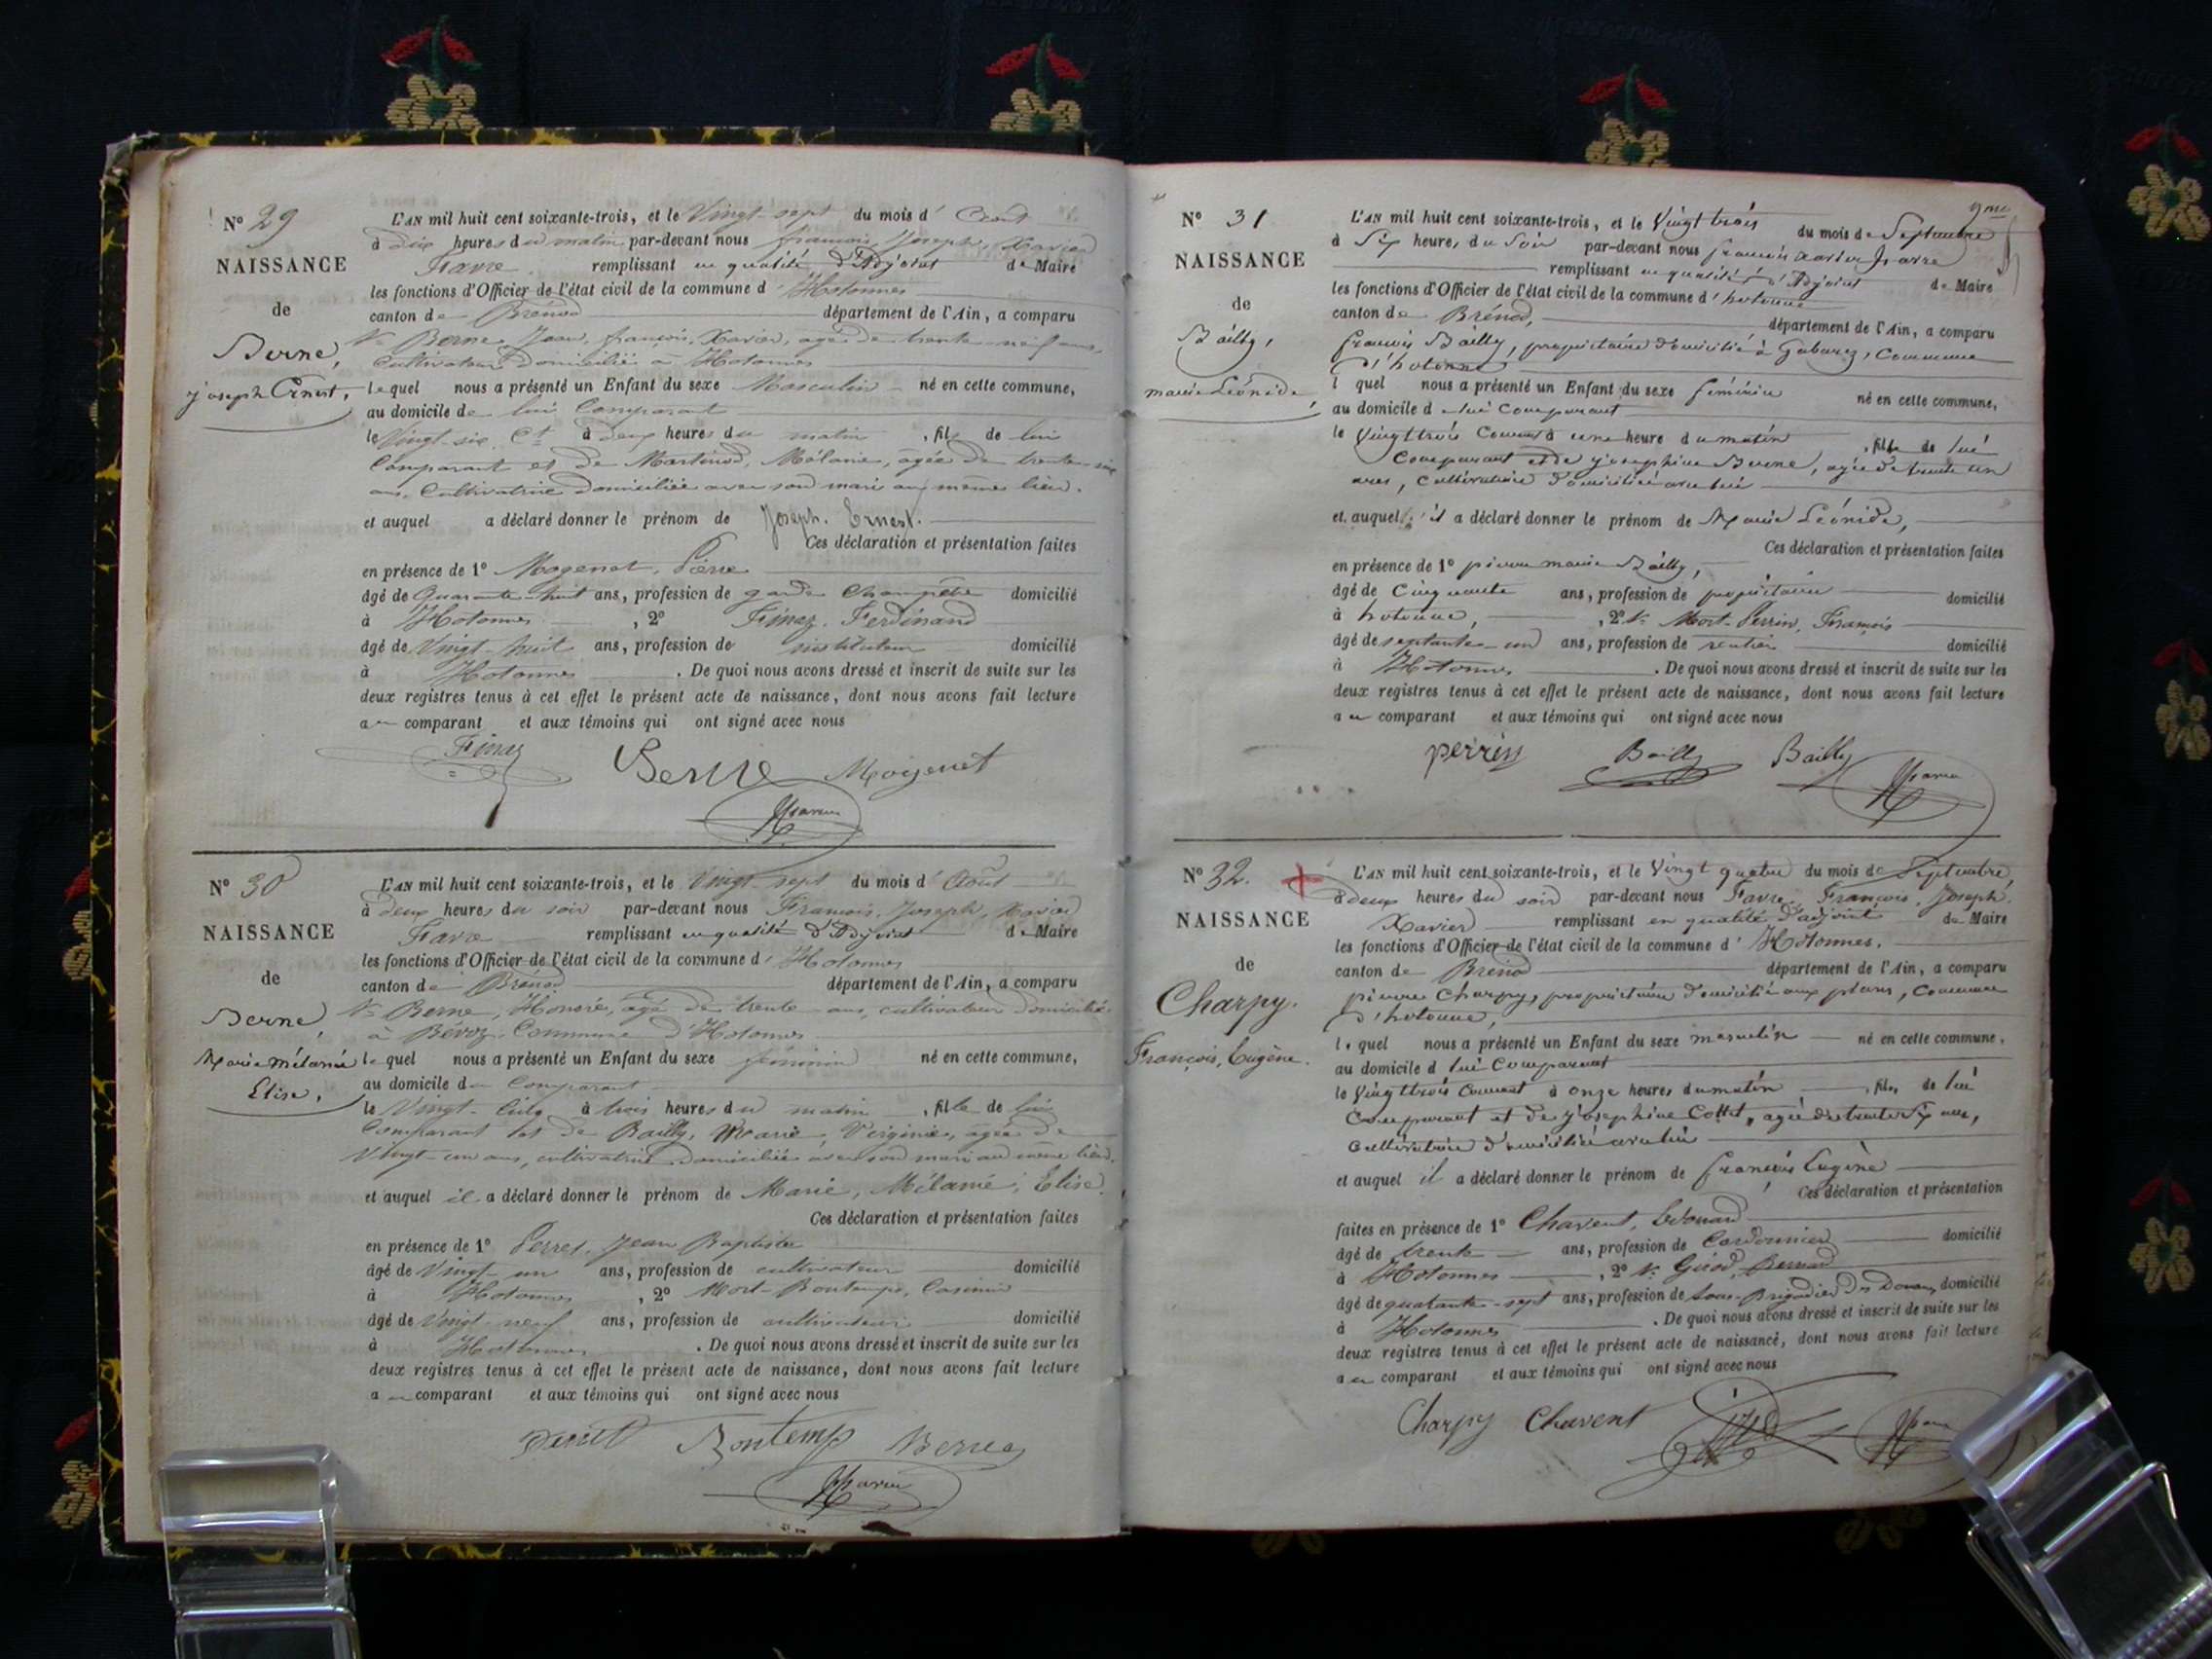 N° 29
NAISSANCE
de
Berne,
joseph Ernest,
L'AN mil huit cent soixante-trois, et le Vingt-sept du mois d' Août
à dix heures du matin par-devant nous françois, Joseph, Xavier
Favre remplissant en qualité d'Adjoint de Maire
les fonctions d'Officier de l'état civil de la commune d' Hotonnes
canton de Brénod département de l'Ain, a comparu
Berne Jean, françois, Xavier, agé de trente-neuf ans,
Cultivateur domicilié à Hotonnes
lequel nous a présenté un Enfant du sexe Masculin né en cette commune,
au domicile de lui Comparant
le Vingt-six Ct à deux heures du matin, fils de lui
Comparant et de Martinod, Mélanie, agée de trente-six
ans, Cultivatrice domiciliée avec son mari au même lieu.
et auquel a déclaré donner le prénom de Joseph. Ernest.
Ces déclaration et présentation faites
en présence de 1° Mogenet, Pierre
âgé de Quarante-huit ans, profession de garde Champêtre domicilié
à Hotonnes, 2° Finaz, Ferdinand
âgé de Vingt-huit ans, profession de instituteur domicilié
à Hotonnes. De quoi nous avons dressé et inscrit de suite sur les
deux registres tenus à cet effet le présent acte de naissance, dont nous avons fait lecture
au comparant et aux témoins qui ont signé avec nous
Finaz Berne Moigenet
Favre
N° 30
NAISSANCE
de
Berne,
Marie Mélanie
Elise,
L'AN mil huit cent soixante-trois, et le Vingt-sept du mois d' Août
à deux heures du soir par-devant nous François, Joseph, Xavier
Favre remplissant en qualité d'Adjoint de Maire
les fonctions d'Officier de l'état civil de la commune d' Hotonnes
canton de Brénod département de l'Ain, a comparu
Berne, Honoré, agé de trente ans, cultivateur domicilié
à Bévoz Commune d'Hotonnes
lequel nous a présenté un Enfant du sexe féminin né en cette commune,
au domicile du Comparant
le Vingt-Cinq à trois heures du matin, fille de lui
Comparant et de Bailly, Marie, Virginie, agée de
Vingt-un ans, cultivatrice domiciliée avec son mari au même lieu.
et auquel il a déclaré donner le prénom de Marie, Mélanie, Elise.
Ces déclaration et présentation faites
en présence de 1° Perret, Jean Baptiste
âgé de Vingt-un ans, profession de cultivateur domicilié
à Hotonnes, 2° Mort-Bontemps, Casimir
âgé de Vingt-neuf ans, profession de cultivateur domicilié
à Hotonnes. De quoi nous avons dressé et inscrit de suite sur les
deux registres tenus à cet effet le présent acte de naissance, dont nous avons fait lecture
au comparant et aux témoins qui ont signé avec nous
Perret Bontemp Berne
Favre
N° 31
NAISSANCE
de
Bailly,
marie Léonide,
L'AN mil huit cent soixante-trois, et le Vingt trois du mois de Septembre
à Six heures du Soir par-devant nous françois xavier favre
remplissant en qualité d'Adjoint de Maire
les fonctions d'Officier de l'état civil de la commune d' hotonne
canton de Brénod, département de l'Ain, a comparu
françois Bailly, propriétaire domicilié à Gabarez, Commune
d'hotonne
l quel nous a présenté un Enfant du sexe féminin né en cette commune,
au domicile de lui Comparant
le Vingttrois Courant à une heure du matin, fille de lui
Comparant et de josephine Berne, agée de trente un
ans, Cultivatrice domiciliée avec lui
et auquel il a déclaré donner le prénom de Marie Léonide,
Ces déclaration et présentation faites
en présence de 1° pierre marie Bailly,
âgé de Cinquante ans, profession de propriétaire domicilié
à hotonne, 2° Mort-Perrin, François
âgé de septante-un ans, profession de rentier domicilié
à Hotonnes. De quoi nous avons dressé et inscrit de suite sur les
deux registres tenus à cet effet le présent acte de naissance, dont nous avons fait lecture
au comparant et aux témoins qui ont signé avec nous
perrin Bailly Bailly
Favre
N° 32.
NAISSANCE
de
Charpy.
François, Eugène.
L'AN mil huit cent soixante-trois, et le Vingt quatre du mois de Septembre,
à deux heures du soir par-devant nous Favre, François, Joseph.
Xavier remplissant en qualité d'adjoint de Maire
les fonctions d'Officier de l'état civil de la commune d' Hotonnes.
canton de Brénod département de l'Ain, a comparu
pierre Charpy, propriétaire domicilié aux plans, Commune
d'hotonne,
lequel nous a présenté un Enfant du sexe masculin né en cette commune,
au domicile d lui Comparant
le Vingttrois Courant à onze heures du matin, fils de lui
Comparant et de josephine Cottet, agée de trente Six ans,
Cultivatrice domiciliée avec lui
et auquel il a déclaré donner le prénom de françois Eugène
Ces déclaration et présentation
faites en présence de 1° Chavent, Edouard
âgé de trente ans, profession de Cordonnier domicilié
à Hotonnes, 2° Girod, Bernard
âgé de quarante-sept ans, profession de Sous-Brigadier des Douanes domicilié
à Hotonnes. De quoi nous avons dressé et inscrit de suite sur les
deux registres tenus à cet effet le présent acte de naissance, dont nous avons fait lecture
au comparant et aux témoins qui ont signé avec nous
Charpy Chavent
Favre